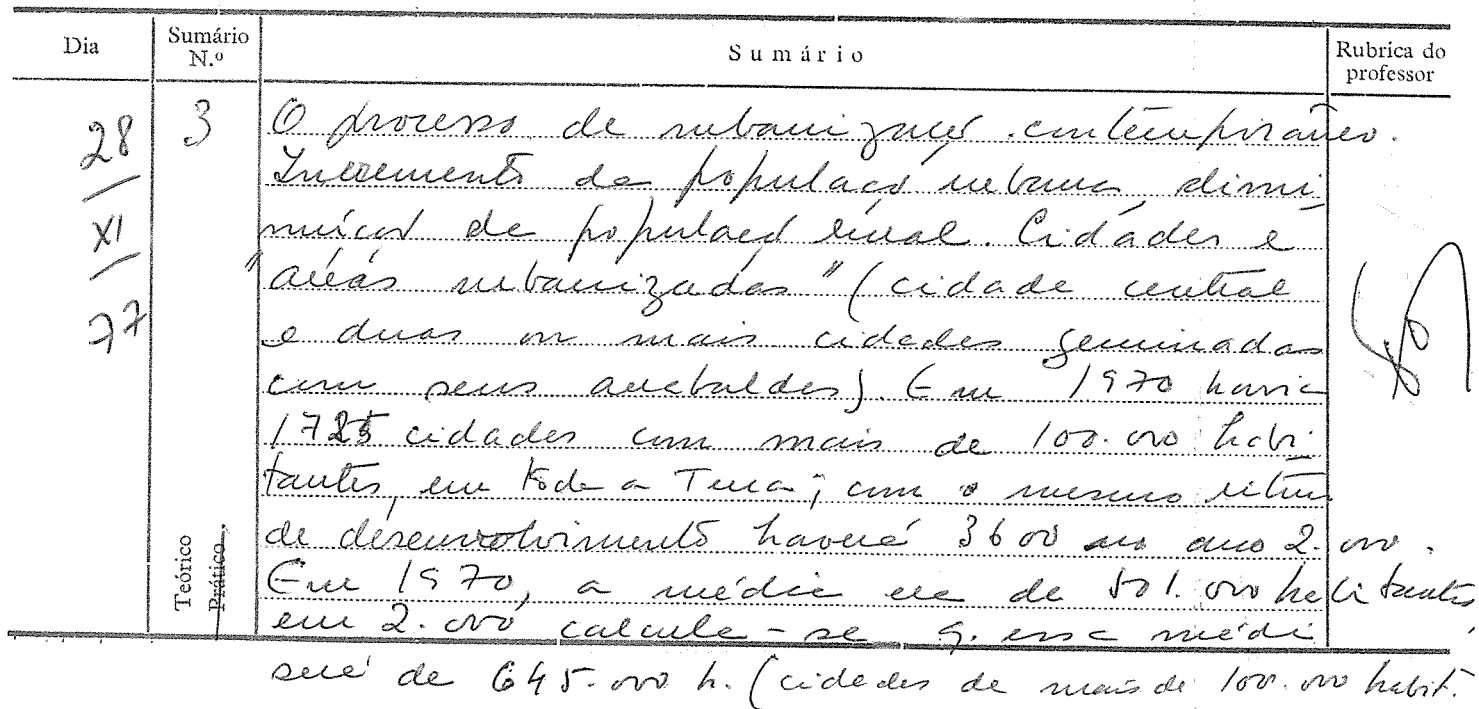 Dia
Sumário
N.º
Sumário
Rubrica do
professor
28
XI
77
3
Teórico
Prático
O processo de urbanização contemporâneo.
Incremento da população urbana, dimi
nuição da população rural. Cidades e
"áreas urbanizadas" (cidade central
e duas ou mais cidades geminadas
com seus arrebaldes). Em 1970 havia
1725 cidades com mais de 100.000 habi
tantes, em toda a Terra; com o mesmo ritmo
de desenvolvimento haverá 3600 no ano 2.000.
Em 1970, a média era de 501.000 habitantes,
em 2.000 calcula-se q. essa média
será de 645.000 h. (cidades de mais de 100.000 habit.